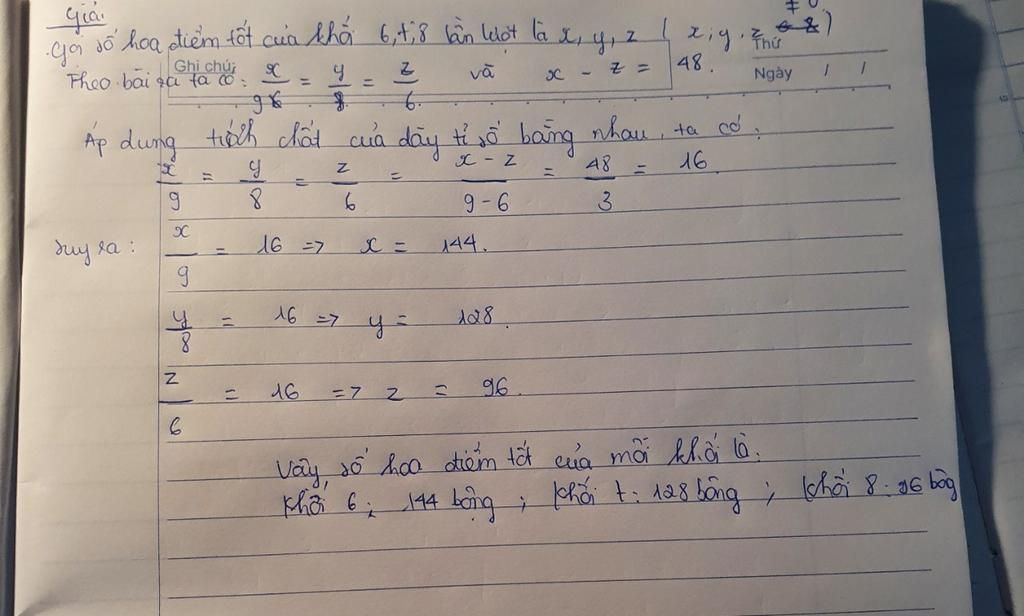 Giải
Gọi số hoa điểm tốt của khối 6,7,8 lần lượt là x, y, z ( x; y, z ≠ 0 )
Ghi chú:
Thứ
Theo bài ra ta có: x/9 = y/8 = z/6 và x - z = 48.
Ngày / /
Áp dụng tính chất của dãy tỉ số bằng nhau, ta có:
x/9 = y/8 = z/6 = (x - z)/(9 - 6) = 48/3 = 16
suy ra: x/9 = 16 => x = 144.
y/8 = 16 => y = 128.
z/6 = 16 => z = 96.
Vậy, số hoa điểm tốt của mỗi khối là:
Khối 6: 144 bông; Khối 7: 128 bông; Khối 8: 96 bông